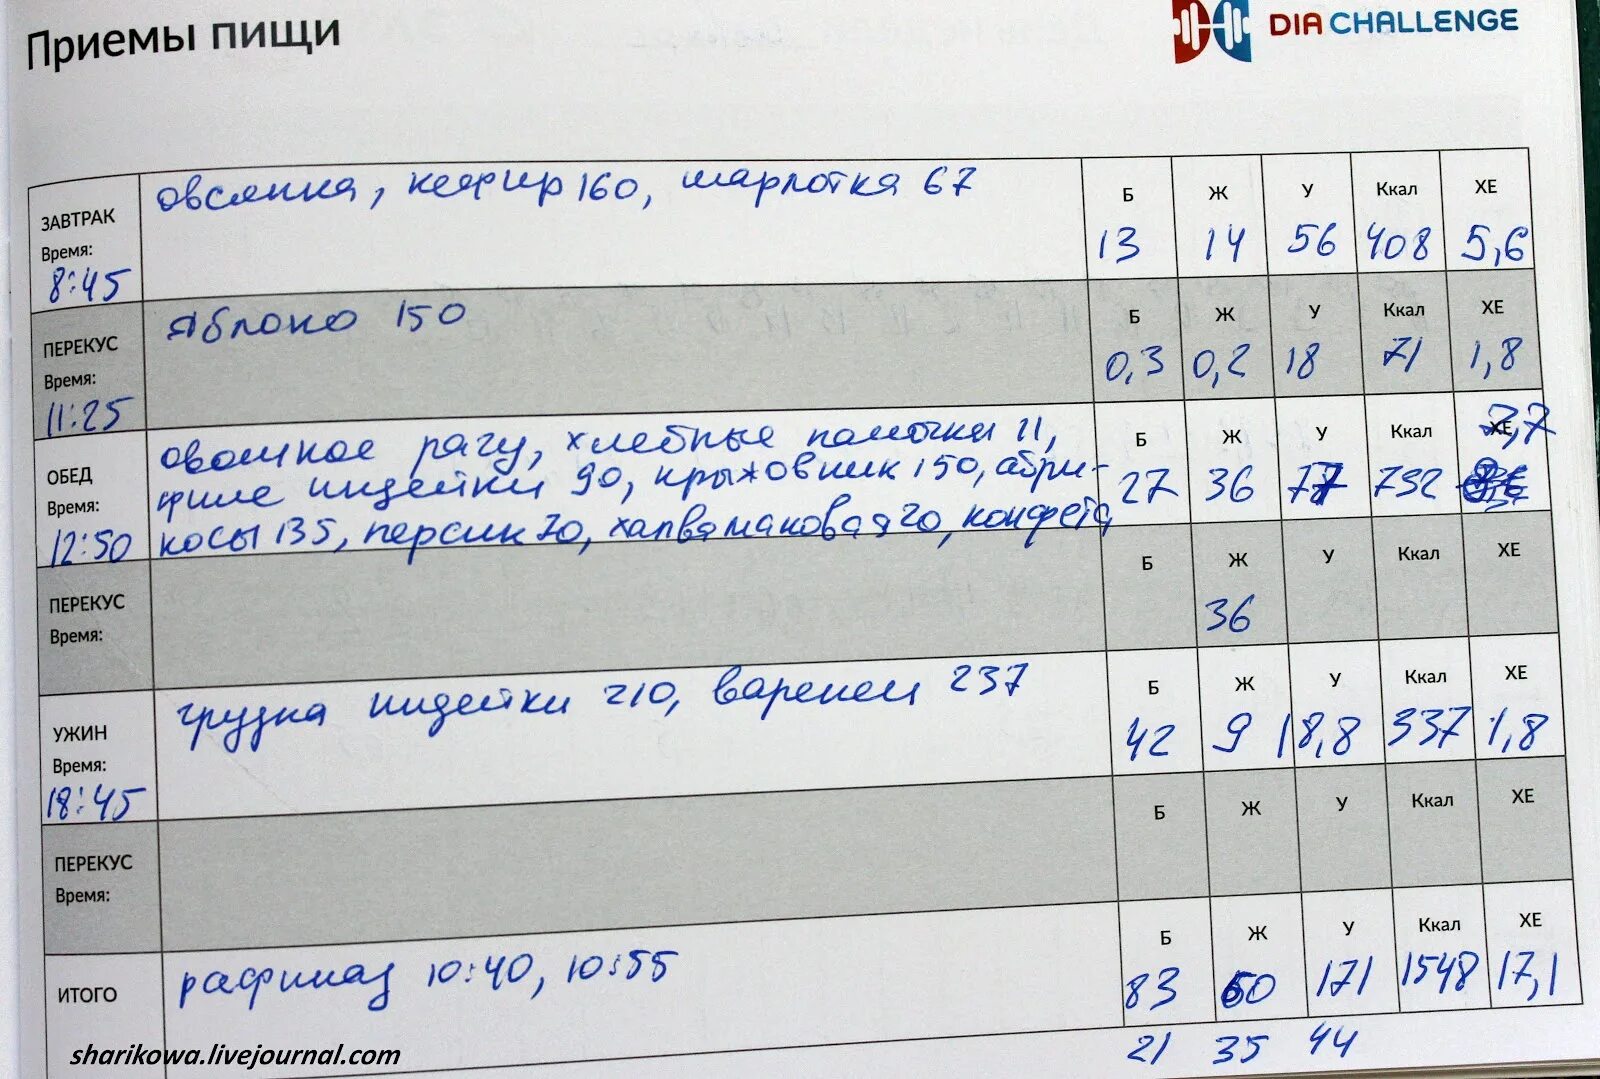 Приемы пищи
DIA CHALLENGE
ЗАВТРАК овсянка, кефир 160, шарлотка 67 Б Ж У Ккал ХЕ
Время: 8:45 13 14 56 408 5,6
ПЕРЕКУС Яблоко 150 Б Ж У Ккал ХЕ
Время: 11:25 0,3 0,2 18 71 1,8
овощное рагу, хлебные палочки 11, 7,7
ОБЕД филе индейки 90, крыжовник 150, абри- Б Ж У Ккал ХЕ
Время: 12:50 косы 135, персик 70, халва маковая 20, конфета 27 36 77 732
ПЕРЕКУС Б Ж У Ккал ХЕ
Время: 36
УЖИН грудка индейки 210, варенец 237 Б Ж У Ккал ХЕ
Время: 18:45 42 9 18,8 337 1,8
ПЕРЕКУС Б Ж У Ккал ХЕ
Время:
ИТОГО рафинад 10:40, 10:55 Б Ж У Ккал ХЕ
83 60 171 1548 17,1
21 35 44
sharikowa.livejournal.com